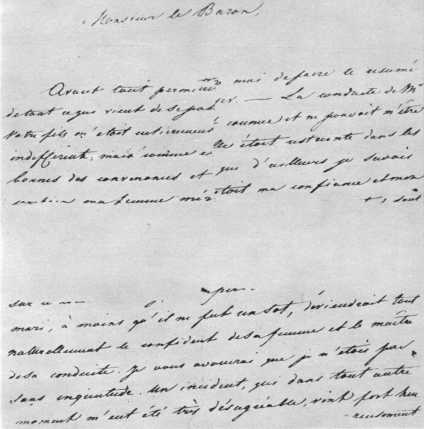 Monsieur le Baron,
Avant tout permettez moi de faire le resumé
de tout ce qui vient de se passer. — La conduite de Mr
votre fils m'etoit entierement connue et ne pouvoit m'être
indifferente, mais comme elle étoit restreinte dans les
bornes des convenances et que d'ailleurs je savois
combien ma femme méritoit ma confiance et mon
sur
mari, à moins qu'il ne fut un sot, deviendroit tout
naturellement le confident de sa femme et le maître
de sa conduite. Je vous avouerai que je n'étois pas
sans inquietude. Un incident, qui dans tout autre
moment m'eut été très désagréable, vint fort heu-
reusement